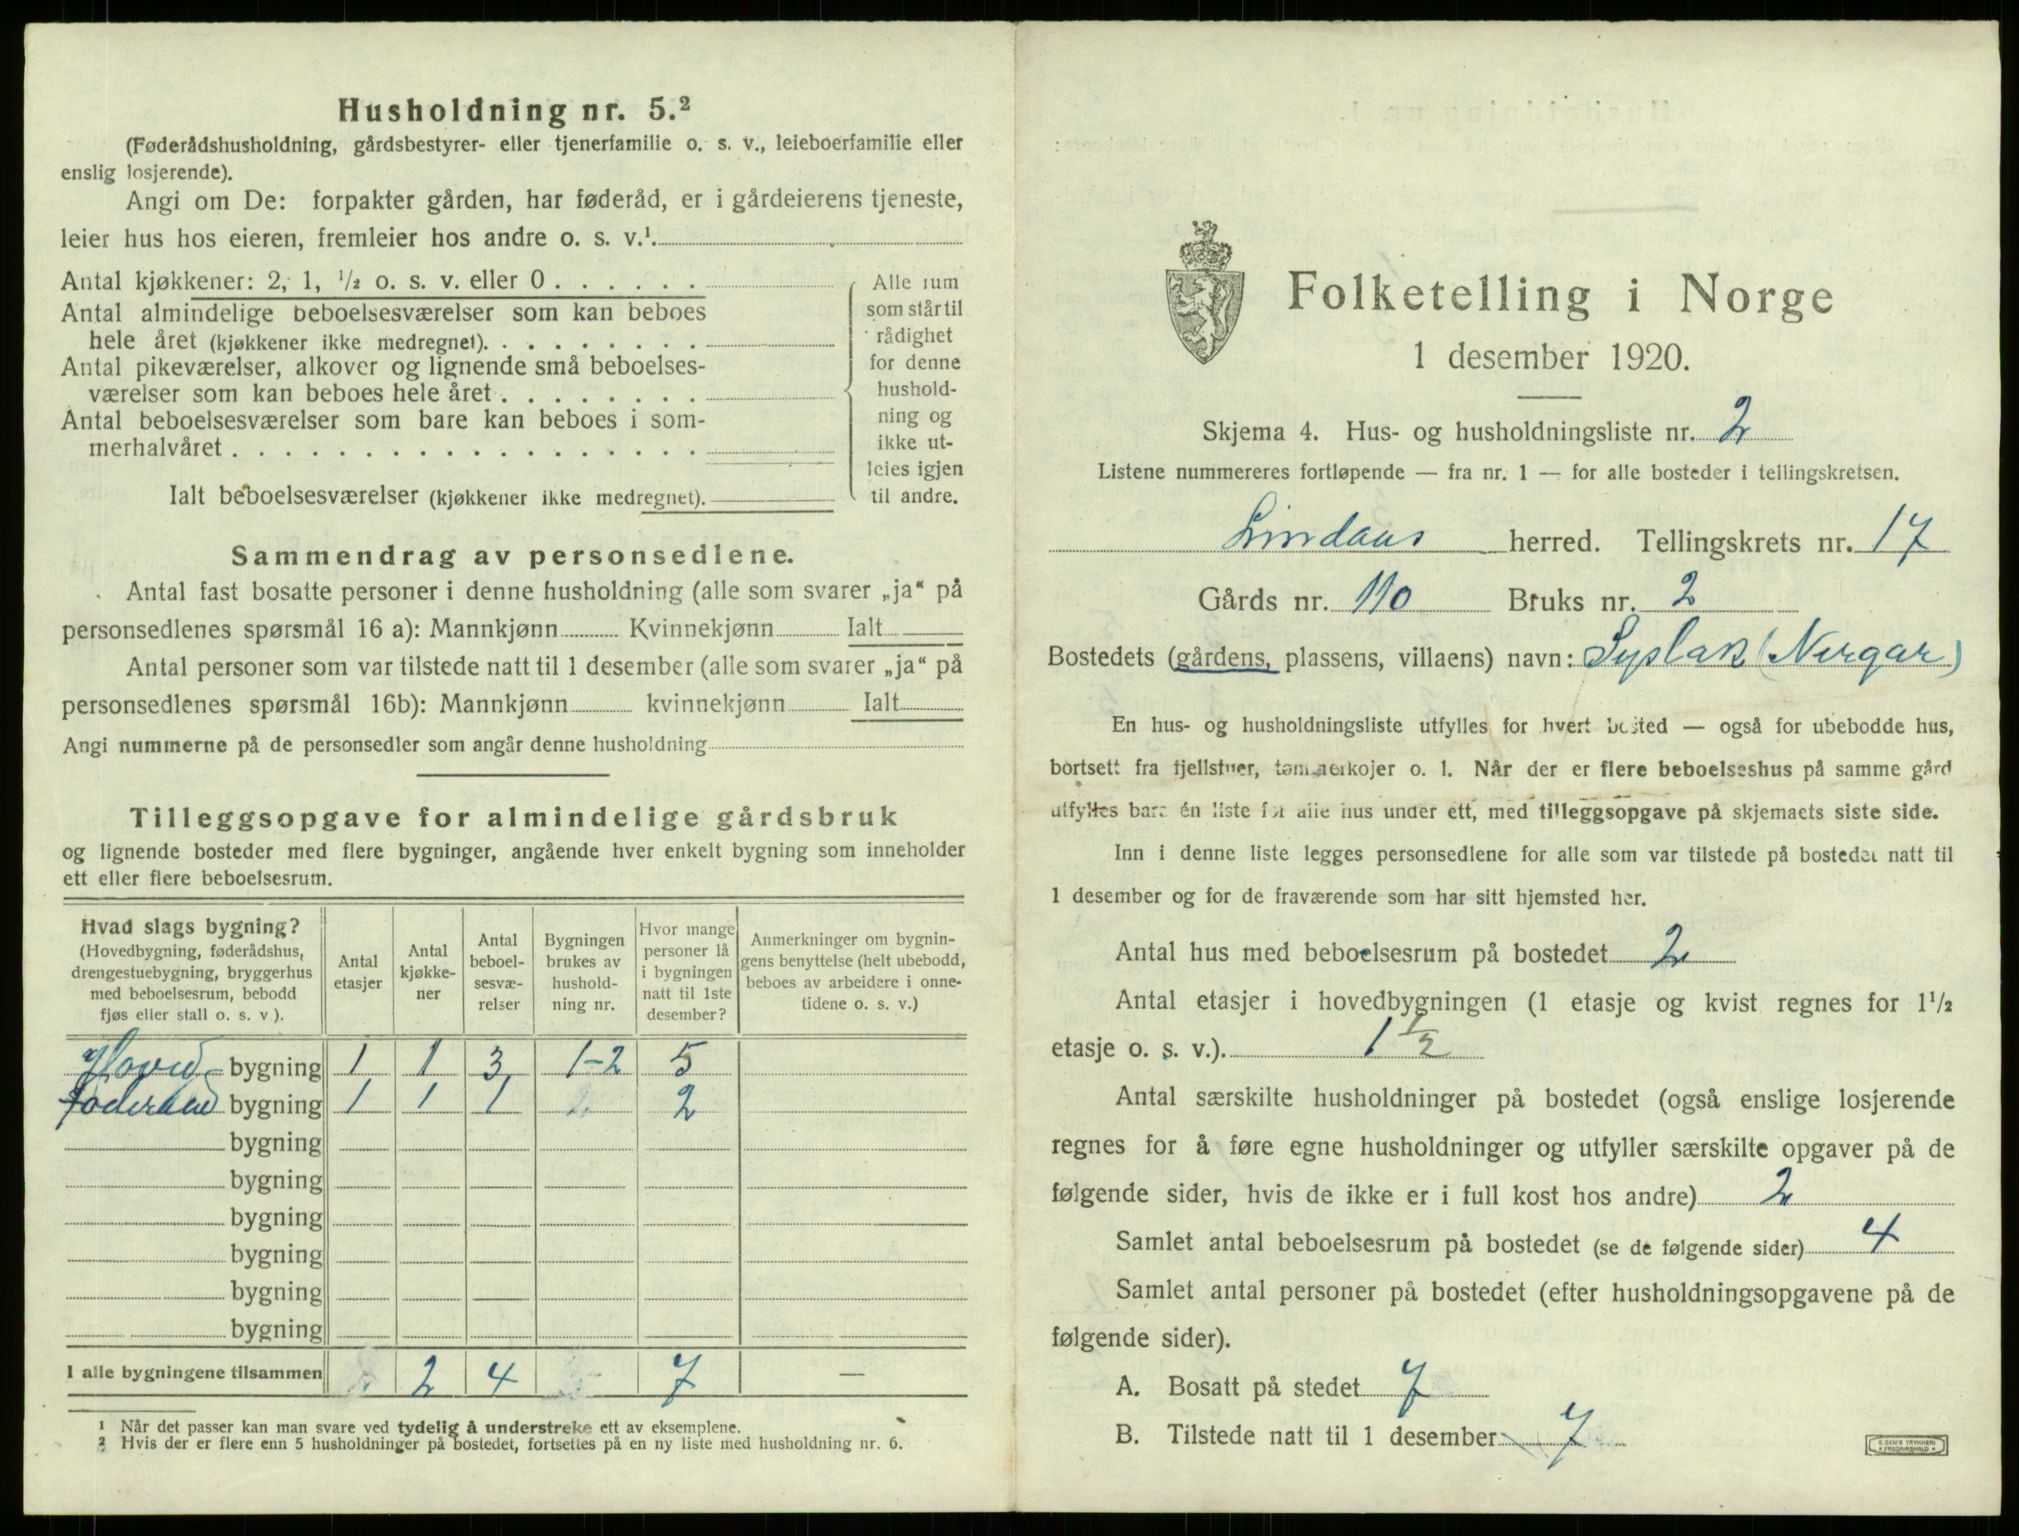 Husholdning nr. 5.²
(Føderådshusholdning, gårdsbestyrer- eller tjenerfamilie o. s. v., leieboerfamilie eller
enslig losjerende).
Angi om De: forpakter gården, har føderåd, er i gårdeierens tjeneste,
leier hus hos eieren, fremleier hos andre o. s. v.¹.
Antal kjøkkener: 2, 1, ½ o. s. v. eller 0
Antal almindelige beboelsesværelser som kan beboes
hele året (kjøkkener ikke medregnet).
Antal pikeværelser, alkover og lignende små beboelses-
værelser som kan beboes hele året
Antal beboelsesværelser som bare kan beboes i som-
merhalvåret
Ialt beboelsesværelser (kjøkkener ikke medregnet).
Alle rum
som står til
rådighet
for denne
hushold-
ning og
ikke ut-
leies igjen
til andre.
Sammendrag av personsedlene.
Antal fast bosatte personer i denne husholdning (alle som svarer „ja“ på
personsedlenes spørsmål 16 a): Mannkjønn Kvinnekjønn Ialt
Antal personer som var tilstede natt til 1 desember (alle som svarer „ja“ på
personsedlenes spørsmål 16b): Mannkjønn kvinnekjønn Ialt
Angi nummerne på de personsedler som angår denne husholdning
Tilleggsopgave for almindelige gårdsbruk
og lignende bosteder med flere bygninger, angående hver enkelt bygning som inneholder
ett eller flere beboelsesrum.
Hvad slags bygning?
(Hovedbygning, føderådshus,
drengestuebygning, bryggerhus
med beboelsesrum, bebodd
fjøs eller stall o. s. v ).
Antal
etasjer
Antal
kjøkke-
ner
Antal
beboel-
sesvæ-
relser
Bygningen
brukes av
hushold-
ning nr.
Hvor mange
personer lå
i bygningen
natt til 1ste
desember?
Anmerkninger om bygnin-
gens benyttelse (helt ubebodd,
beboes av arbeidere i onne-
tidene o. s. v.)
Hoved- bygning 1 1 3 1-2 5
føderaad bygning 1 1 1 2
bygning
bygning
bygning
bygning
bygning
bygning
I alle bygningene tilsammen 2 4 7 —
¹ Når det passer kan man svare ved tydelig å understreke ett av eksemplene.
² Hvis der er flere enn 5 husholdninger på bostedet, fortsettes på en ny liste med husholdning nr. 6.
Folketelling i Norge
1 desember 1920.
Skjema 4. Hus- og husholdningsliste nr. 2
Listene nummereres fortløpende — fra nr. 1 — for alle bosteder i tellingskretsen.
Lindaas herred. Tellingskrets nr. 17
Gårds nr. 110 Bruks nr. 2
Bostedets (gårdens, plassens, villaens) navn: Syslak (Nergar)
En hus- og husholdningsliste utfylles for hvert bosted — også for ubebodde hus,
bortsett fra fjellstuer, tømmerkojer o. l. Når der er flere beboelseshus på samme gård
utfylles bare én liste for alle hus under ett, med tilleggsopgave på skjemaets siste side.
Inn i denne liste legges personsedlene for alle som var tilstede på bostedet natt til
1 desember og for de fraværende som har sitt hjemsted her.
Antal hus med beboelsesrum på bostedet 2
Antal etasjer i hovedbygningen (1 etasje og kvist regnes for 1½
etasje o. s. v.). 1 ½
Antal særskilte husholdninger på bostedet (også enslige losjerende
regnes for å føre egne husholdninger og utfyller særskilte opgaver på de
følgende sider, hvis de ikke er i full kost hos andre) 2
Samlet antal beboelsesrum på bostedet (se de følgende sider) 4
Samlet antal personer på bostedet (efter husholdningsopgavene på de
følgende sider).
A. Bosatt på stedet 7
B. Tilstede natt til 1 desember 7